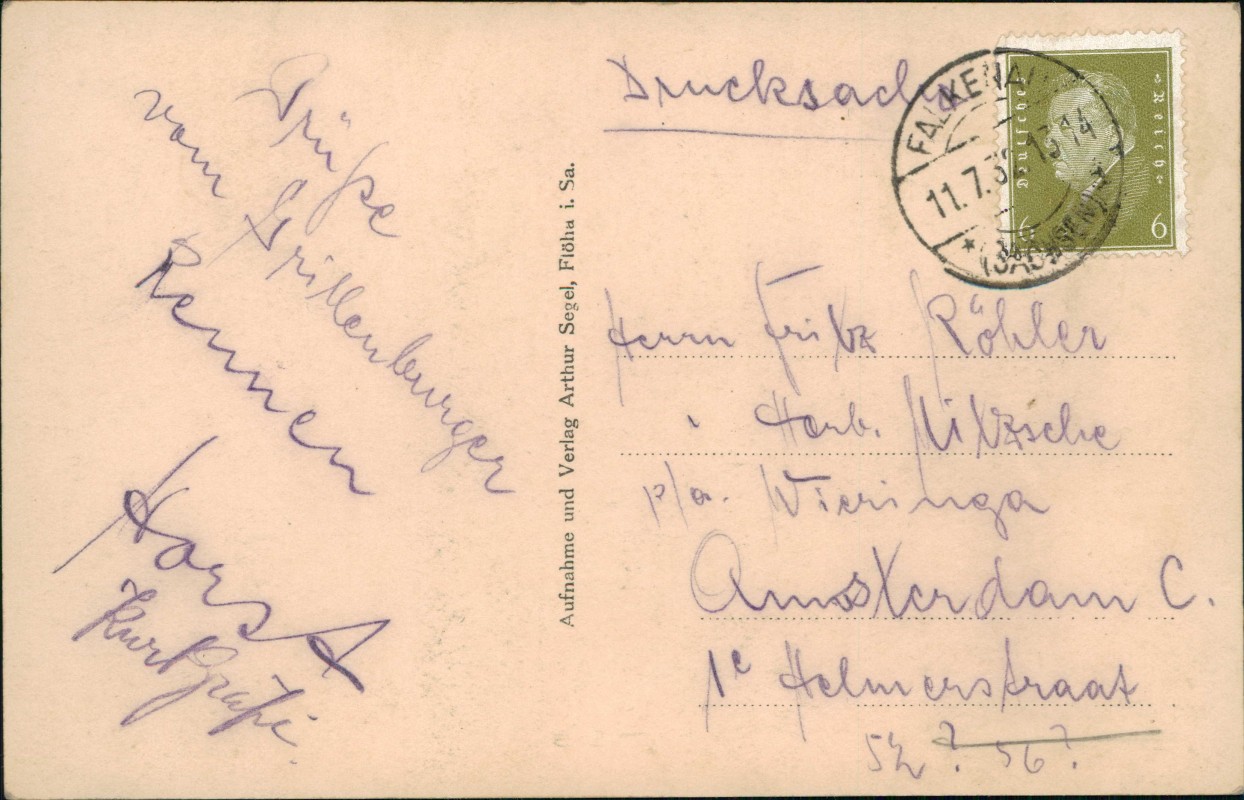 Grüße
vom Grillenburger
Rennen
Horst
Kurt
Aufnahme und Verlag Arthur Segel, Flöha i. Sa.
Drucksache
FALKENAU
11.7.32 13-14
* (SACHSEN)
Deutsches Reich
6 6
Herrn Fritz Röhler
Herb. Nitzsche
p/a. Wieringa
Amsterdam C.
1e Helmerstraat
52? 56?